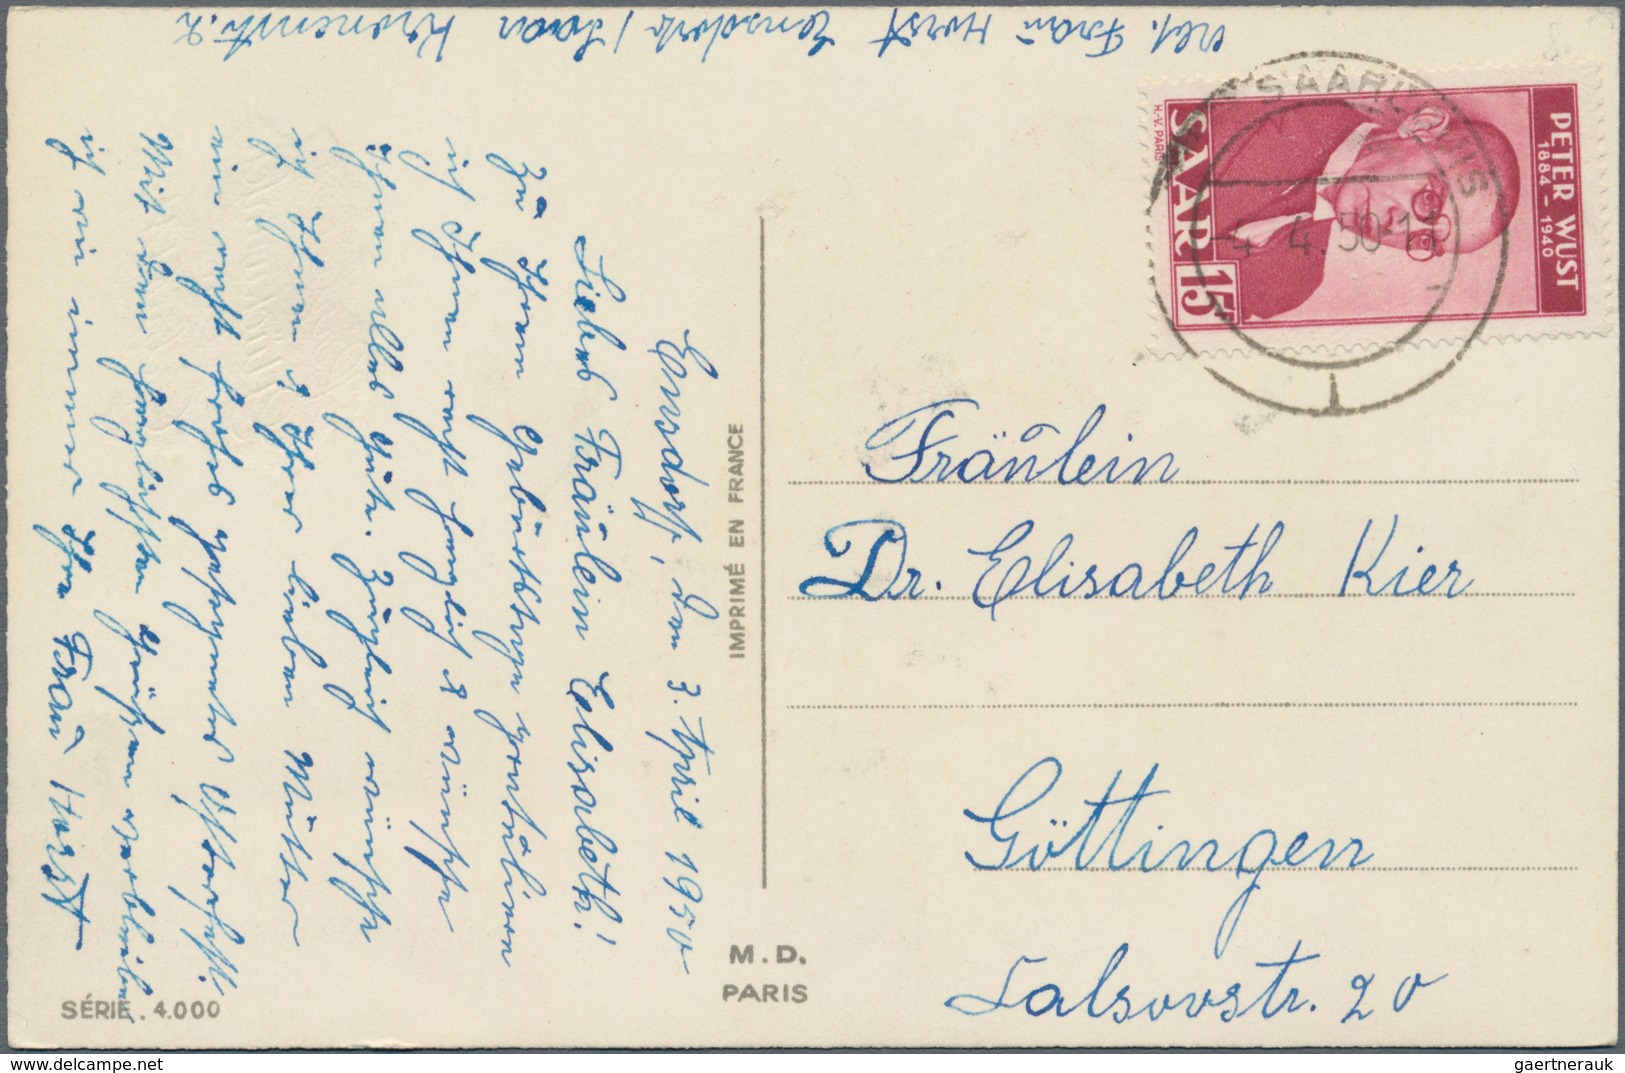 Abs. Frau Horst Ensdorf / Saar Kronenstr. 2
Ensdorf, den 3. April 1950
Liebes Fräulein Elisabeth!
Zu Ihrem Geburtstage gratuliere
ich Ihnen recht herzlich & wünsche
Ihnen alles Gute. Zugleich wünsche
ich Ihnen & Ihrer lieben Mutter
ein recht frohes gesegnetes Osterfest.
Mit den herzlichsten Grüßen verbleibe
ich wie immer Ihre Frau Horst
SÉRIE. 4.000
IMPRIMÉ EN FRANCE
M. D.
PARIS
PETER WUST
1884 - 1940
SAAR 15F
H.-V. PARIS
SAARLOUIS
-4. 4. 50-11
Fräulein
Dr. Elisabeth Kier
Göttingen
Calsowstr. 20
gaertnerauk